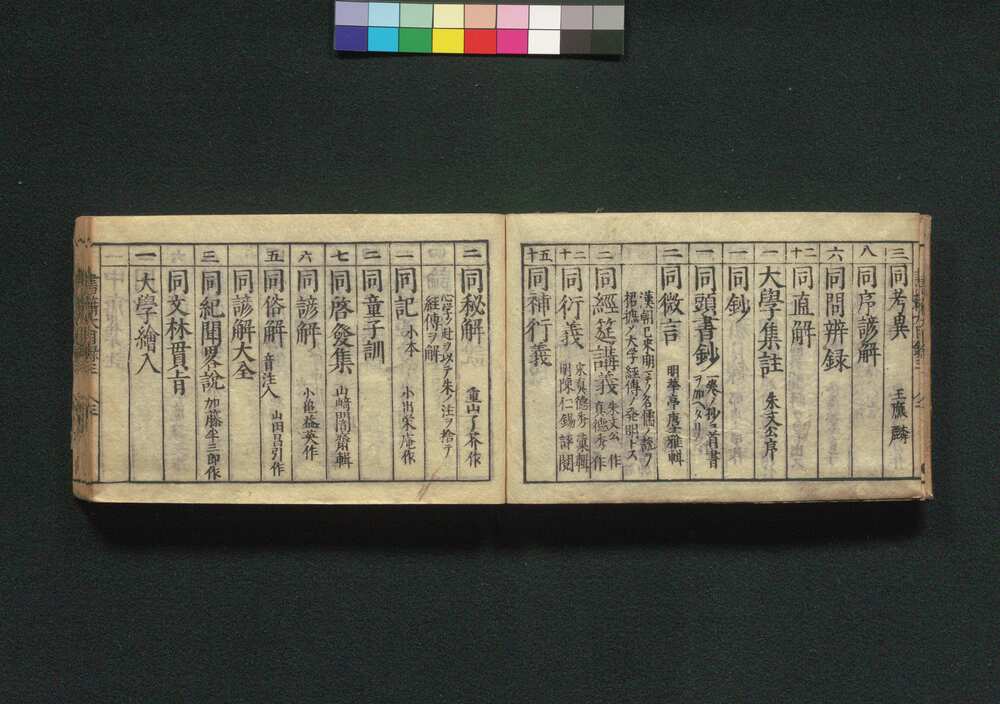 三 同考異 王應麟
八 同序諺解
六 同問辨録
十二 同直解
一 大學集註 朱文公序
一 同鈔
一 同頭書鈔 一巻ノ抄ニ首書ヲ加ヘタリ
二 同微言 明華亭唐雅輯
漢朝ヨリ東明マテノ名儒ノ説ヲ
摭摭ノ大学経傳ノ発明トス
二 同經筵講義 朱文公作 真德秀作
十二 同衍義 宋真德秀彙輯 明陳仁錫評閲
十五 同補衍義
二 同秘解 重山了芥作
心学ノ趣ヲ以テ朱ノ注ヲ捨テ
経傳ヲ解
一 同記 小本 小出栄庵作
二 同童子訓
七 同啓發集 山﨑闇齋輯
六 同諺解 小亀益英作
五 同俗解 音注入 山田昌引作
同諺解大全
三 同紀聞畧説 加藤半三郎作
同文林貫旨
一 大學繪入